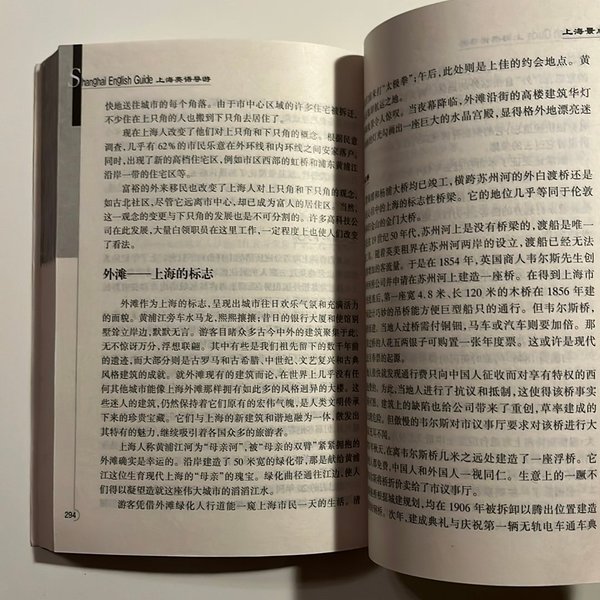 Shanghai English Guide 上海英语导游
快地送往城市的每个角落。由于市中心区域的许多住宅被拆迁,
不少住在上只角的人也搬到下只角去居住了。
现在上海人改变了他们对上只角和下只角的概念。根据民意
调查,几乎有 62% 的市民乐意在外环线和内环线之间安家落户。
同时,出现了新的高档住宅区,例如市区西部的虹桥和浦东黄浦江
沿岸一带的住宅区等。
富裕的外来移民也改变了上海人对上只角和下只角的观念,
如古北社区,尽管它远离市中心,却已成为富人的居住区。当然,
这一观念的变更与下只角的发展也是不可分割的。许多高科技公
司在此发展,大量白领职员在这里工作,一定程度上也使人们改变
了看法。
外滩——上海的标志
外滩作为上海的标志,呈现出城市往日欢乐气氛和充满活力
的面貌。黄浦江旁车水马龙,熙熙攘攘;昔日的银行大厦和使馆别
墅耸立岸边,默默无言。游客目睹众多古今中外的建筑聚集于此,
无不惊讶万分,浮想联翩。其中有些是我们祖先留下的数千年前
的遗迹,而大部分则是古罗马和古希腊、中世纪、文艺复兴和古典
风格建筑的成就。就外滩现有的建筑而论,在世界上几乎没有任
何其他城市能像上海外滩那样拥有如此多的风格迥异的大楼。这
些迷人的建筑,仍然保持着它们原有的宏伟气魄,是人类文明传承
下来的珍贵宝藏。它们与上海的新建筑和谐地融为一体,散发出
其特有的魅力,继续吸引着各国众多的旅游者。
上海人称黄浦江河为“母亲河”,被“母亲的双臂”紧紧拥抱的
外滩确实是幸运的。沿岸建造了 50 米宽的绿化带,那是献给黄浦
江这位生育现代上海的“母亲”的瑰宝。绿化曲径通往江边,使人
们得以凝望造就这座伟大城市的滔滔江水。
游客凭借外滩绿化人行道能一窥上海市民一天的生活。清
294
上海景点
来打“太极拳”;午后,此处则是上佳的约会地点。黄
之地。
令人惊叹。当夜幕降临,外滩沿街的高楼建筑华灯
灯光勾画出一座巨大的水晶宫殿,显得格外地漂亮迷
和杨浦大桥均已竣工,横跨苏州河的外白渡桥还是
中的上海的标志性桥梁。它的地位几乎等同于伦敦
的金门大桥。
19 世纪 50 年代,苏州河上是没有桥梁的,渡船是唯一
随着英美租界在苏州河两岸的设立,渡船已经无法
客流量。于是在 1854 年,英国商人韦尔斯先生创
公司并申请在苏州河上建造一座桥。在得到上海市
第一座宽 4.8 米、长 120 米的木桥在 1856 年建
巧妙的吊桥能方便巨型船只的通行。但韦尔斯桥,
当地人过桥需付铜钿,马车或汽车则要加倍。那
的人花五两银子可购置一张年度票。这或许是现代
的起源。
就发现通行费只向中国人征收而对享有特权的西
方。为此,当地人进行了抗议和抵制,这使得该桥事实
建筑上的缺陷也给公司带来了重创,草率建成的
但傲慢的韦尔斯对市议事厅要求对该桥进行大
不同。
年,在离韦尔斯桥几米之远处建造了一座浮桥。它
费,中国人和外国人一视同仁。生意上的一蹶不
得将桥折价卖给了市议事厅。
根据城建规划,均在 1906 年被拆卸以腾出位置建造
钢桥。次年,建成典礼与庆祝第一辆无轨电车通车典